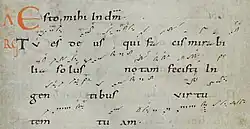 Esto, mihi In dm̄
RG Tu es de us qui fa cis mirabi
lia solus notam fecisti In
gen tibus virtu
tem tu am.